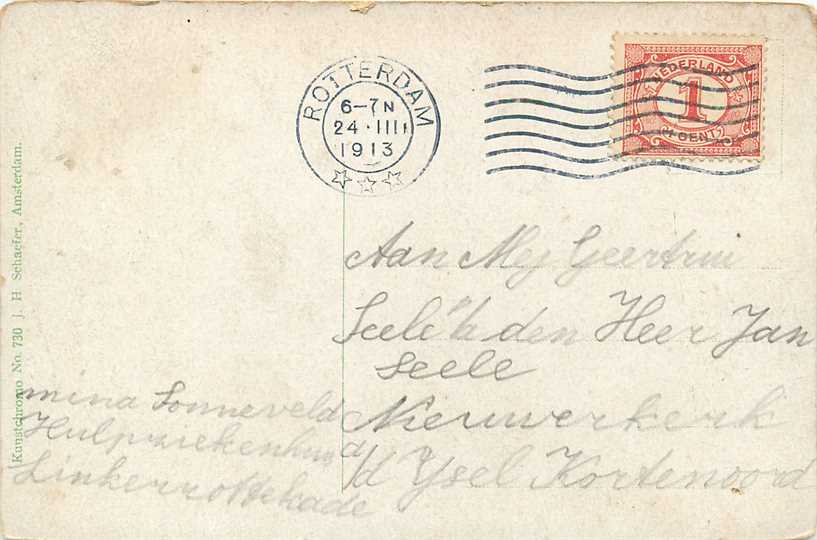 ROTTERDAM
6-7N
24.IIII
1913
NEDERLAND
1
CENT
Aan Mej Geertrui
Seele "/a den Heer Jan
Seele
Nieuwerkerk
a/d Ysel Kortenoord
mina Sonneveld
Hulpziekenhuis
Linkerrottekade
Kunstchromo No. 730 J. H Schaefer, Amsterdam.